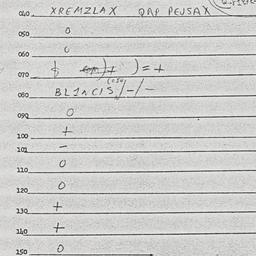 040. XREMZLAX QAP PEUSAX
050. 0
060. 0
070 ) = +
080. BL1NCIS/-/-
090 0
100 +
101 -
110. 0
120 0
130 +
140 +
150 0